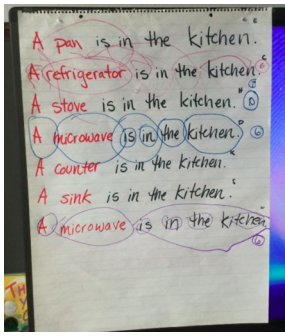 A pan is in the kitchen.
A refrigerator is in the kitchen.
A stove is in the kitchen.
A microwave is in the kitchen.
A counter is in the kitchen.
A sink is in the kitchen.
A microwave is in the kitchen